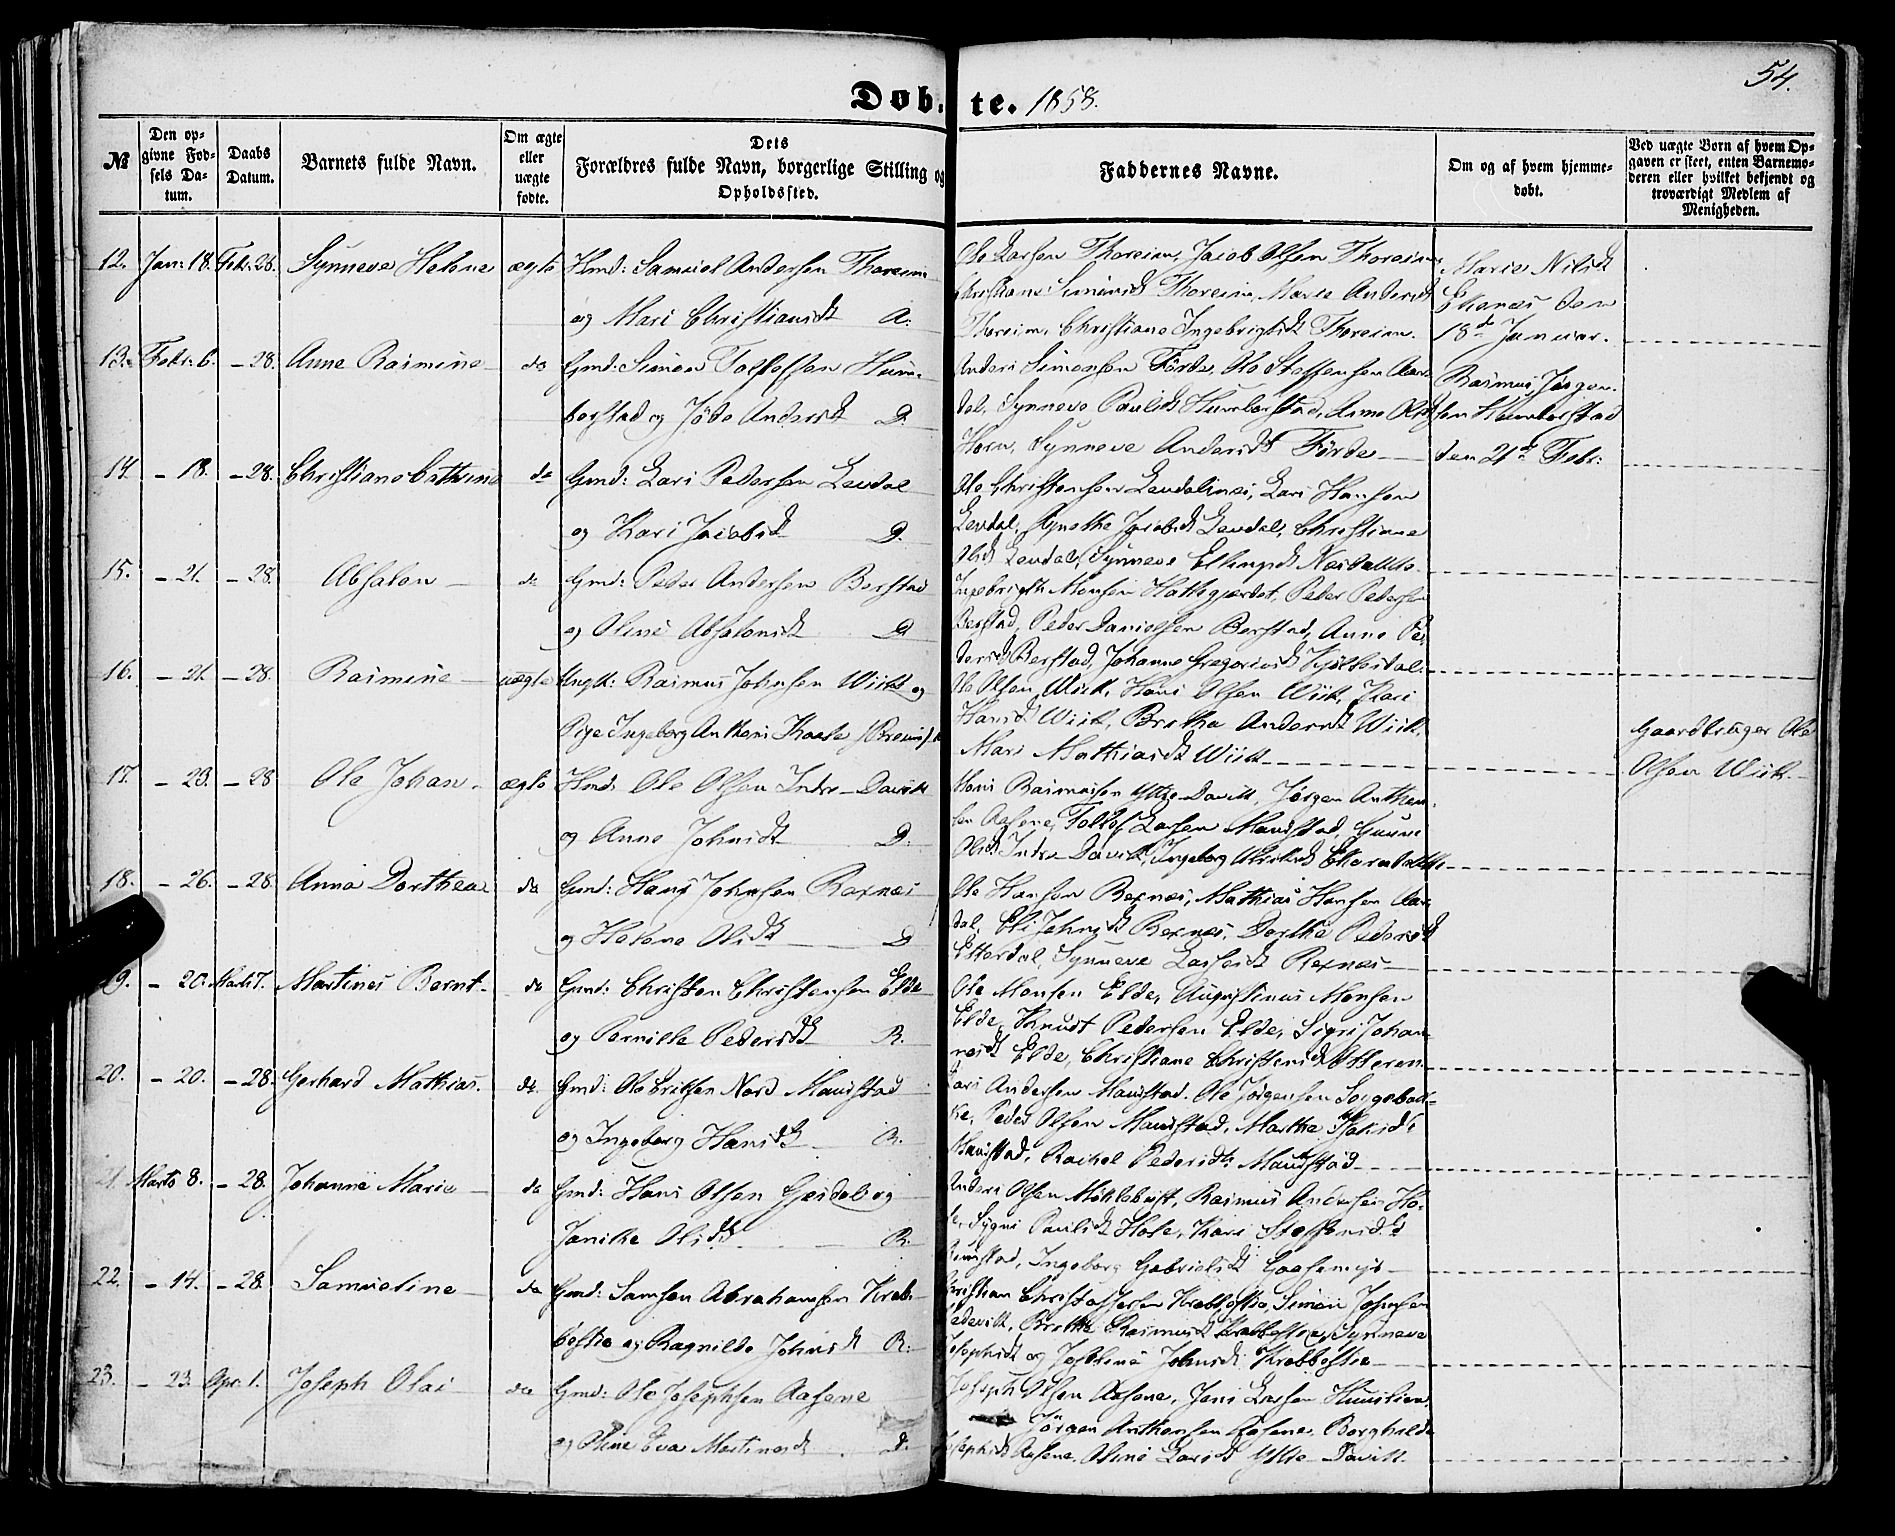 54.
Døbte. 1858.
№
Den opgivne Fødsels Datum.
Daabs Datum.
Barnets fulde Navn.
Om ægte eller uægte fødte.
Dets Forældres fulde Navn, borgerlige Stilling og Opholdssted.
Faddernes Navne.
Om og af hvem hjemmedøbt.
Ved uægte Børn af hvem Opgaven er skeet, enten Barnemoderen eller hvilket bekjendt og troværdigt Medlem af Menigheden.
12. Jan: 18. Febr. 28. Synneve Helene ægte Hmd: Samuel Andersen Thoreim
og Mari Christiansdt A.
Ole Larsen Thoreim, Jacob Olsen Thoreim,
Christiane Simonsdt Thoreim, Marie Andersdt
Thoreim, Christiane Ingebrigtsdt Thoreim.
Marie Nilsdt
Ekenæs den
18de Januar.
13. Febr. 6. - 28. Anne Rasmine do Gmd: Simon Tollefsen Hum-
borstad og Jøde Andersdt D.
Anders Simonsen Förde, Ole Steffensen Aar-
dal, Synneve Paulsdt Humborstad, Anne Olsdt
Horn, Synneve Andersdt Förde
Rasmus Jørgen-
sen Humborstad
den 21de Febr:
14. - 18. - 28. Christiane Cathrine do Gmd: Lars Pedersen Levdal
og Kari Jacobsdt D.
Ole Christensen Levdalsnæs, Lars Hansen
Levdal, Agnethe Jacobsdt Levdal, Christiane
Olsdt Levdal, Synneve
15. - 21. - 28. Absalon do Gmd: Peder Andersen Berstad
og Oline Absalonsdt D
Ingebrigth Monsen Hattegjerdet, Peder Pedersen
Berstad, Peder Danielsen Berstad, Anne Pe-
dersdt Berstad, Johanne Gregoriusdt
16. - 21. - 28. Rasmine uægte Ungk: Rasmus Johnsen Wiik og
Pige Ingeborg Anthonsdt
Ole Olsen Wiik, Hans Olsen Wiik, Kari
Hansdt Wiik, Brithe Andersdt Wiik,
Mari Mathiasdt Wiik
Gaardbruger Ole
Olsen Wiik
17. - 23. - 28 Ole Johan ægte Hmd: Ole Olsen Indre-Davik
og Anne Johnsdt D.
Hans Rasmusen Yttre Davik, Jørgen Anthon-
sen Aasene, Tollef Larsen Maurstad, Gunne
Olsdt Indre Davik, Ingeborg
18. - 26. - 28. Anna Dorthea do Gmd: Hans Johnsen Rexnæs
og Helene Olsdt D
Ole Hansen Rexnæs, Mathias Hansen Aar-
dal, Eli Johnsdt Rexnæs, Dorthe Pedersdt
Endredal, Synneve Larsdt Rexnæs
19. - 20. Marts 7. Martinus Bernt do Gmd: Christen Christensen Elde
og Pernille Pedersdt R.
Ole Monsen Elde, Augustinus Monsen
Elde, Knudt Pedersen Elde, Sigri Johan-
nesdt Elde, Christiane Christensdt Otteren
20. - 20. - 28. Gerhard Mathias do. Gmd: Ole Eriksen Nord Maurstad
og Ingeborg Hansdt R.
Lars Andersen Maurstad. Ole Jørgensen
Peder Olsen Maurstad, Marthe
Maurstad, Rachel Pedersdt Maurstad
21. Marts 8. - 28. Johanne Marie do Gmd: Hans Olsen Gjesdal og
Janike Olsdt R.
Anders Olsen Myklebust, Rasmus Andersen Ho-
le, Sygni Paulsdt Hole, Kari Steffensdt
Maurstad, Ingeborg Gabrielsdt
22. - 14. - 28. Samueline do Gmd: Samson Abrahamsen Krab-
bestie og Ragnilde Johnsdt R.
Christian Christophersen Krabbestie, Simon Johnsen
Brithe Rasmusdt Krabbestie, Synneve
Josephsdt og Josphine Johnsdt Krabbestie
23. - 23. Apr. 1. Joseph Olai do Gmd: Ole Josephsen Aasene
og Oline Eva Martinusdt D.
Joseph Olsen Aasene, Jens Larsen
Jörgen Anthonsen Aasene, Borghilde
Josephsdt Aasene, Oline Larsdt Yttre Davik